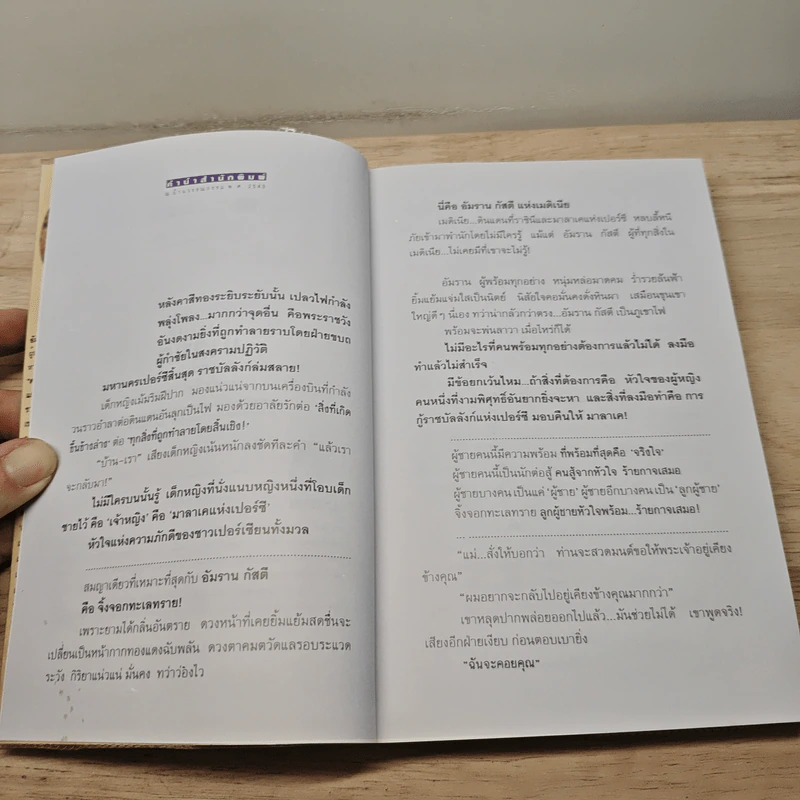 คำนำสำนักพิมพ์
หลังคาสีทองระยิบระยับนั้น เปลวไฟกำลัง
พลุ่งโพลง...มากกว่าจุดอื่น คือพระราชวัง
อันงดงามยิ่งที่ถูกทำลายราบโดยฝ่ายขบถ
ผู้กำชัยในสงครามปฏิวัติ
มหานครเปอร์ซีสิ้นสุด ราชบัลลังก์ล่มสลาย!
เด็กหญิงเม้มริมฝีปาก มองแน่วแน่จากบนเครื่องบินที่กำลัง
วนราวอำลาต่อดินแดนอันลุกเป็นไฟ มองด้วยอาลัยรักต่อ 'สิ่งที่เกิด
ขึ้นข้างล่าง' ต่อ 'ทุกสิ่งที่ถูกทำลายโดยสิ้นเชิง!'
"บ้าน–เรา" เสียงเด็กหญิงเน้นหนักลงชัดทีละคำ "แล้วเรา
จะกลับมา!"
ไม่มีใครบนนั้นรู้ เด็กหญิงที่นั่งแนบหญิงหนึ่งที่โอบเด็ก
ชายไว้ คือ 'เจ้าหญิง' คือ 'มาลาเคแห่งเปอร์ซี'
หัวใจแห่งความภักดีของชาวเปอร์เซียนทั้งมวล
สมญาเดียวที่เหมาะที่สุดกับ อัมราน กัสดี
คือ จิ้งจอกทะเลทราย!
เพราะยามได้กลิ่นอันตราย ดวงหน้าที่เคยยิ้มแย้มสดชื่นจะ
เปลี่ยนเป็นหน้ากากทองแดงฉับพลัน ดวงตาคมตวัดแลรอบระแวด
ระวัง กิริยาแน่วแน่ มั่นคง ทว่าว่องไว
นี่คือ อัมราน กัสดี แห่งเมดิเนีย
เมดิเนีย...ดินแดนที่ราชินีและมาลาเคแห่งเปอร์ซี หลบลี้หนี
ภัยเข้ามาพำนักโดยไม่มีใครรู้ แม้แต่ อัมราน กัสดี ผู้ที่ทุกสิ่งใน
เมดิเนีย...ไม่เคยมีที่เขาจะไม่รู้!
อัมราน ผู้พร้อมทุกอย่าง หนุ่มหล่อมาดคม ร่ำรวยล้นฟ้า
ยิ้มแย้มแจ่มใสเป็นนิตย์ นิสัยใจคอมั่นคงดั่งหินผา เสมือนขุนเขา
ใหญ่ดีๆ นี่เอง ทว่าน่ากลัวกว่าตรง...อัมราน กัสดี เป็นภูเขาไฟ
พร้อมจะพ่นลาวา เมื่อไหร่ก็ได้
ไม่มีอะไรที่คนพร้อมทุกอย่างต้องการแล้วไม่ได้ ลงมือ
ทำแล้วไม่สำเร็จ
มีข้อยกเว้นไหม...ถ้าสิ่งที่ต้องการคือ หัวใจของผู้หญิง
คนหนึ่งที่งามพิศุทธิ์อันยากยิ่งจะหา และสิ่งที่ลงมือทำคือ การ
กู้ราชบัลลังก์แห่งเปอร์ซี มอบคืนให้ มาลาเค!
ผู้ชายคนนี้มีความพร้อม ที่พร้อมที่สุดคือ 'จริงใจ'
ผู้ชายคนนี้เป็นนักต่อสู้ คนสู้จากหัวใจ ร้ายกาจเสมอ
ผู้ชายบางคน เป็นแค่ 'ผู้ชาย' ผู้ชายอีกบางคน เป็น 'ลูกผู้ชาย'
จิ้งจอกทะเลทราย ลูกผู้ชายหัวใจพร้อม...ร้ายกาจเสมอ!
"แม่...สั่งให้บอกว่า ท่านจะสวดมนต์ขอให้พระเจ้าอยู่เคียง
ข้างคุณ"
"ผมอยากจะกลับไปอยู่เคียงข้างคุณมากกว่า"
เขาหลุดปากพล่อยออกไปแล้ว...มันช่วยไม่ได้ เขาพูดจริง!
เสียงอีกฝ่ายเงียบ ก่อนตอบเบายิ่ง
"ฉันจะคอยคุณ"